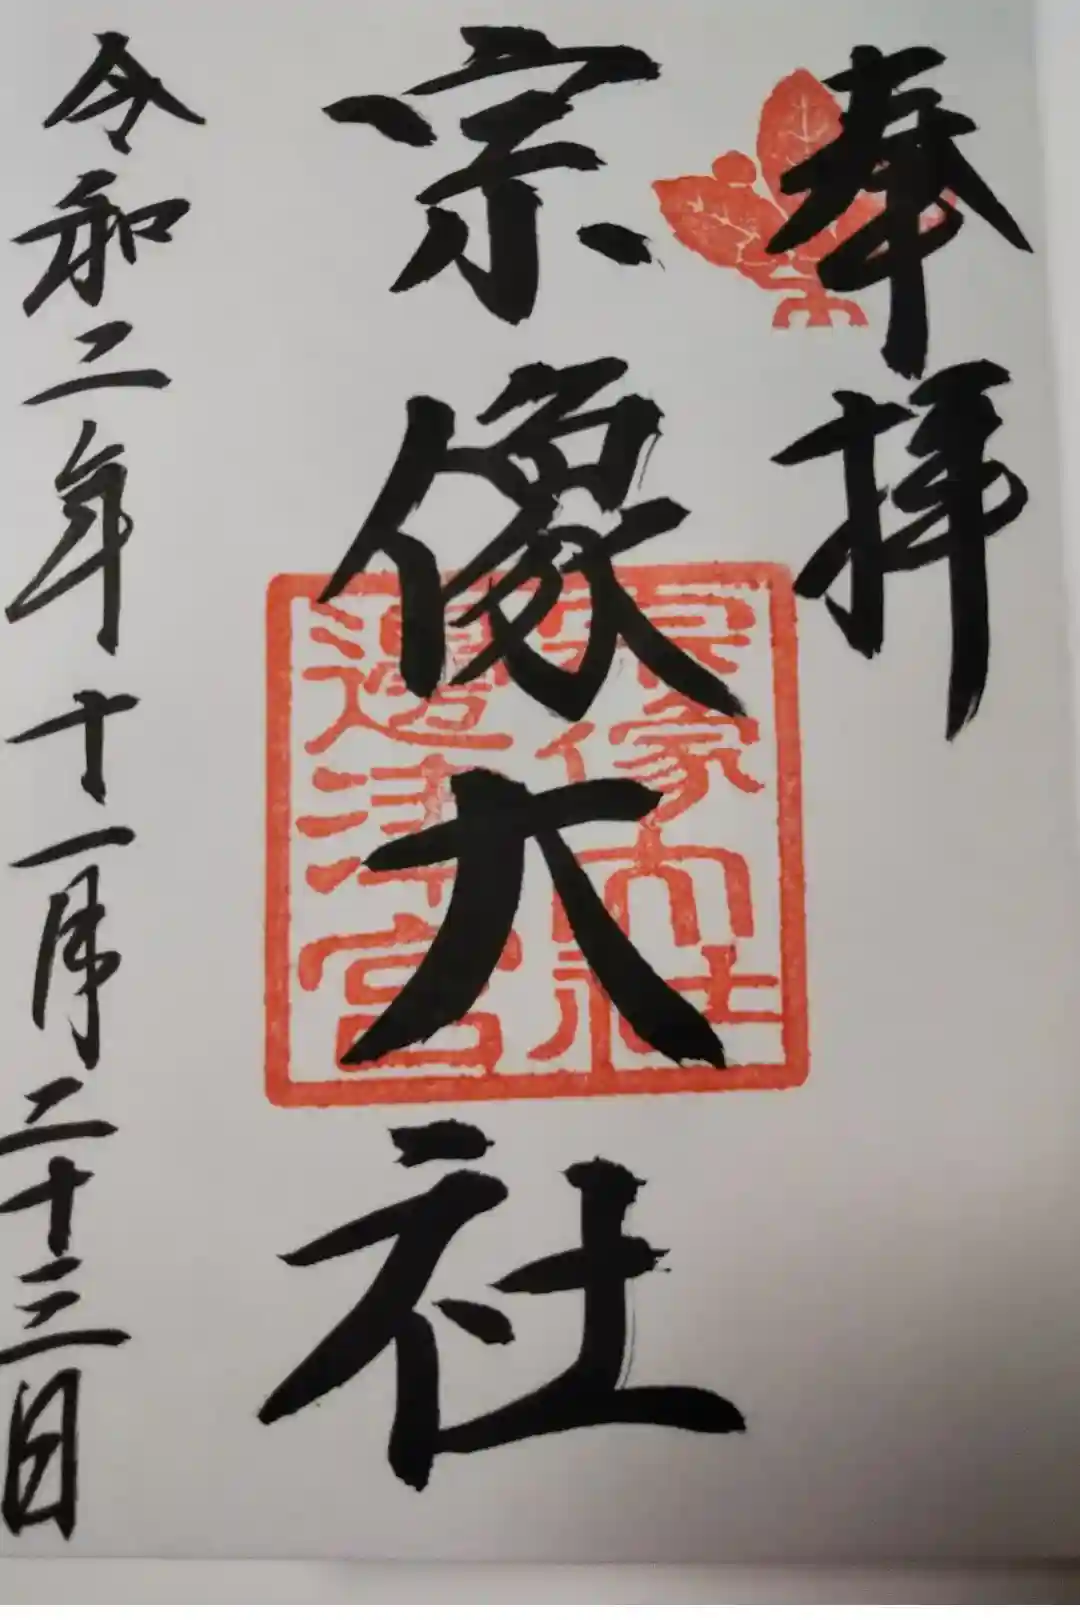 奉拝
宗像大社
宗像大社
邊津宮
令和二年十一月二十三日